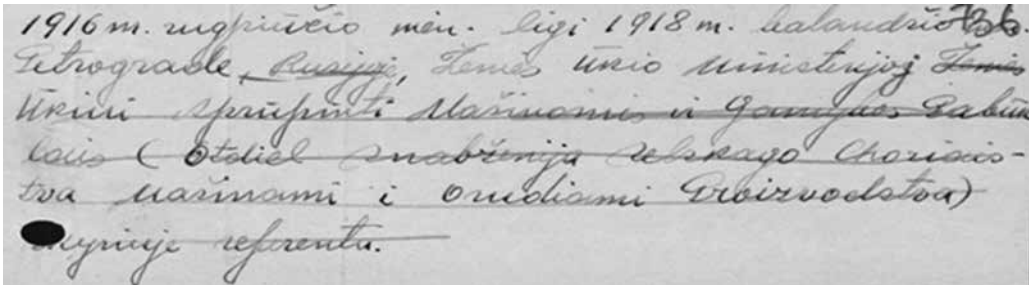 1916 m. rugpiučio mėn. ligi 1918 m. balandžio
Petrograde, Rusijoje, Žemės Ūkio Ministerijoj Žemės
Ūkiui Aprūpinti Mašinomis ir Gamybos Pabūk
lais (Otdiel snabženija selskago choziais-
tva mašinami i orudiami proizvodstva)
skyriuje referentu.